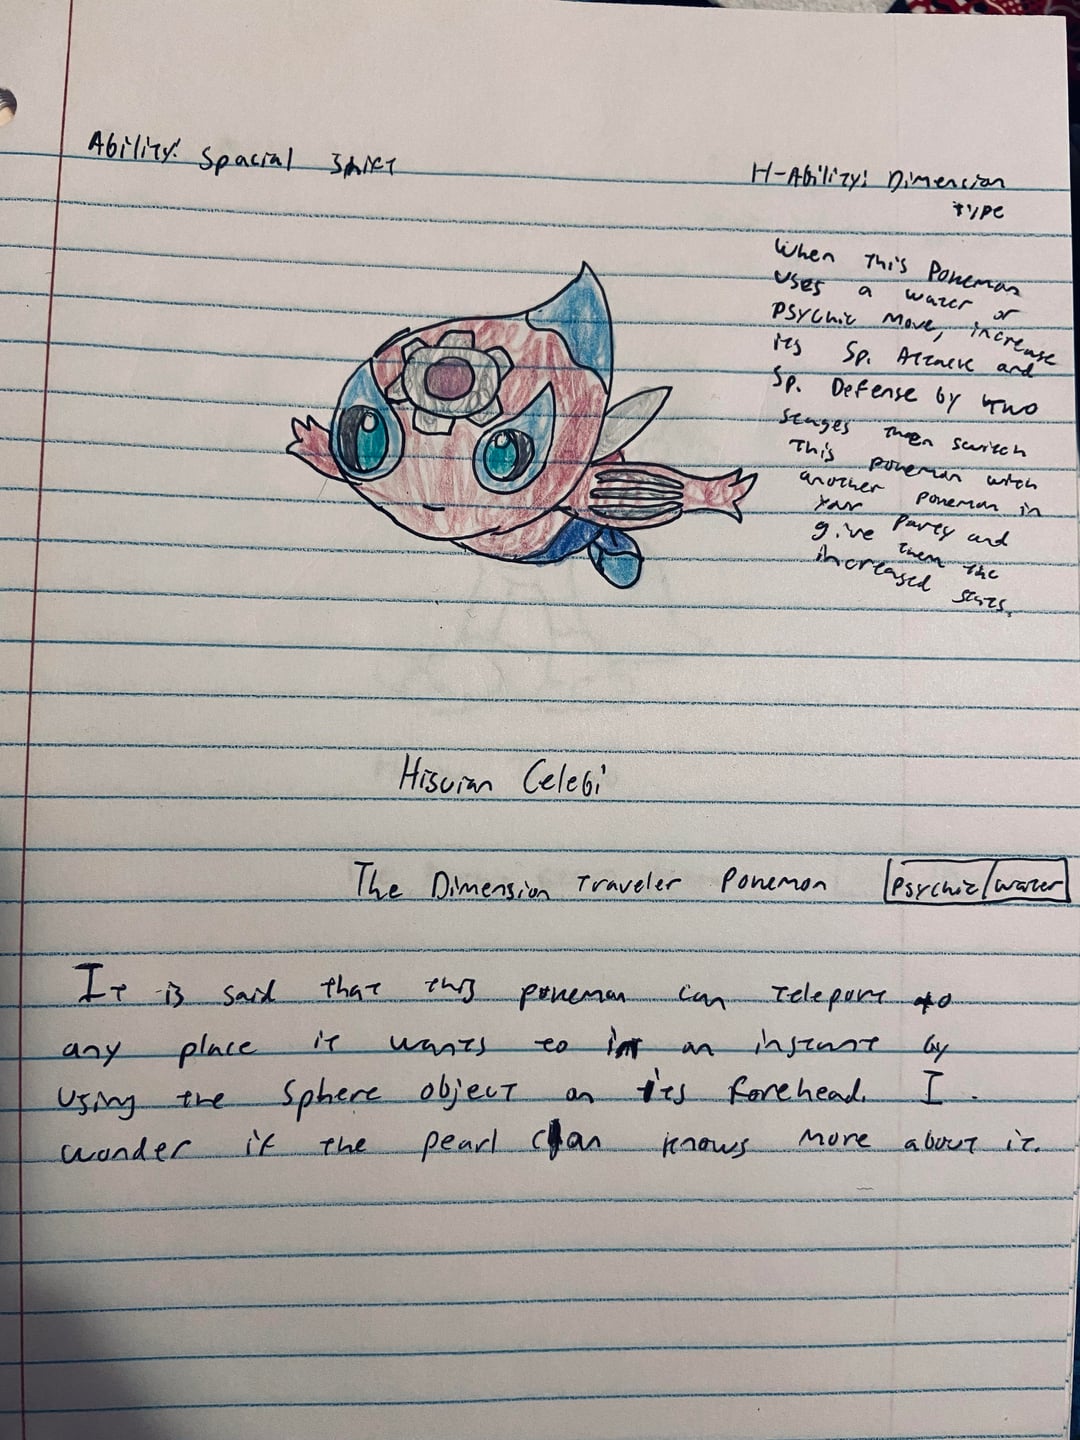 Ability: Spacial Shift
H-Ability: Dimencian
type
When this Pokemon
uses a water or
Psychic move, increase
its Sp. Attack and
Sp. Defense by two
stages then switch
this pokemon with
another pokemon in
your party and
give them the
increased stats.
Hisuian Celebi
The Dimension Traveler Pokemon
Psychic/water
It is said that this pokemon can teleport to
any place it wants to in an instant by
using the sphere object on its forehead. I
wonder if the pearl clan knows more about it.